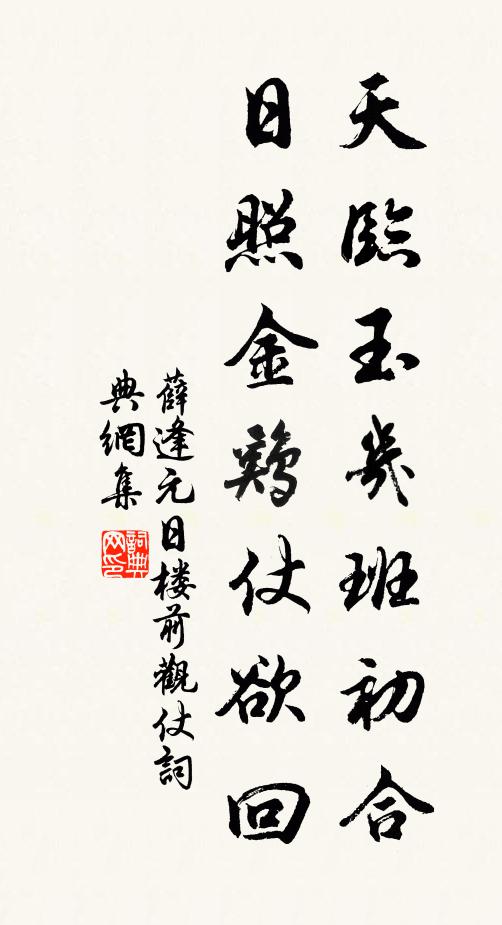 天臨玉几班初合
日照金鷄仗欲回
薛逢元日楼前觀仗詞
典網集
詞典网印